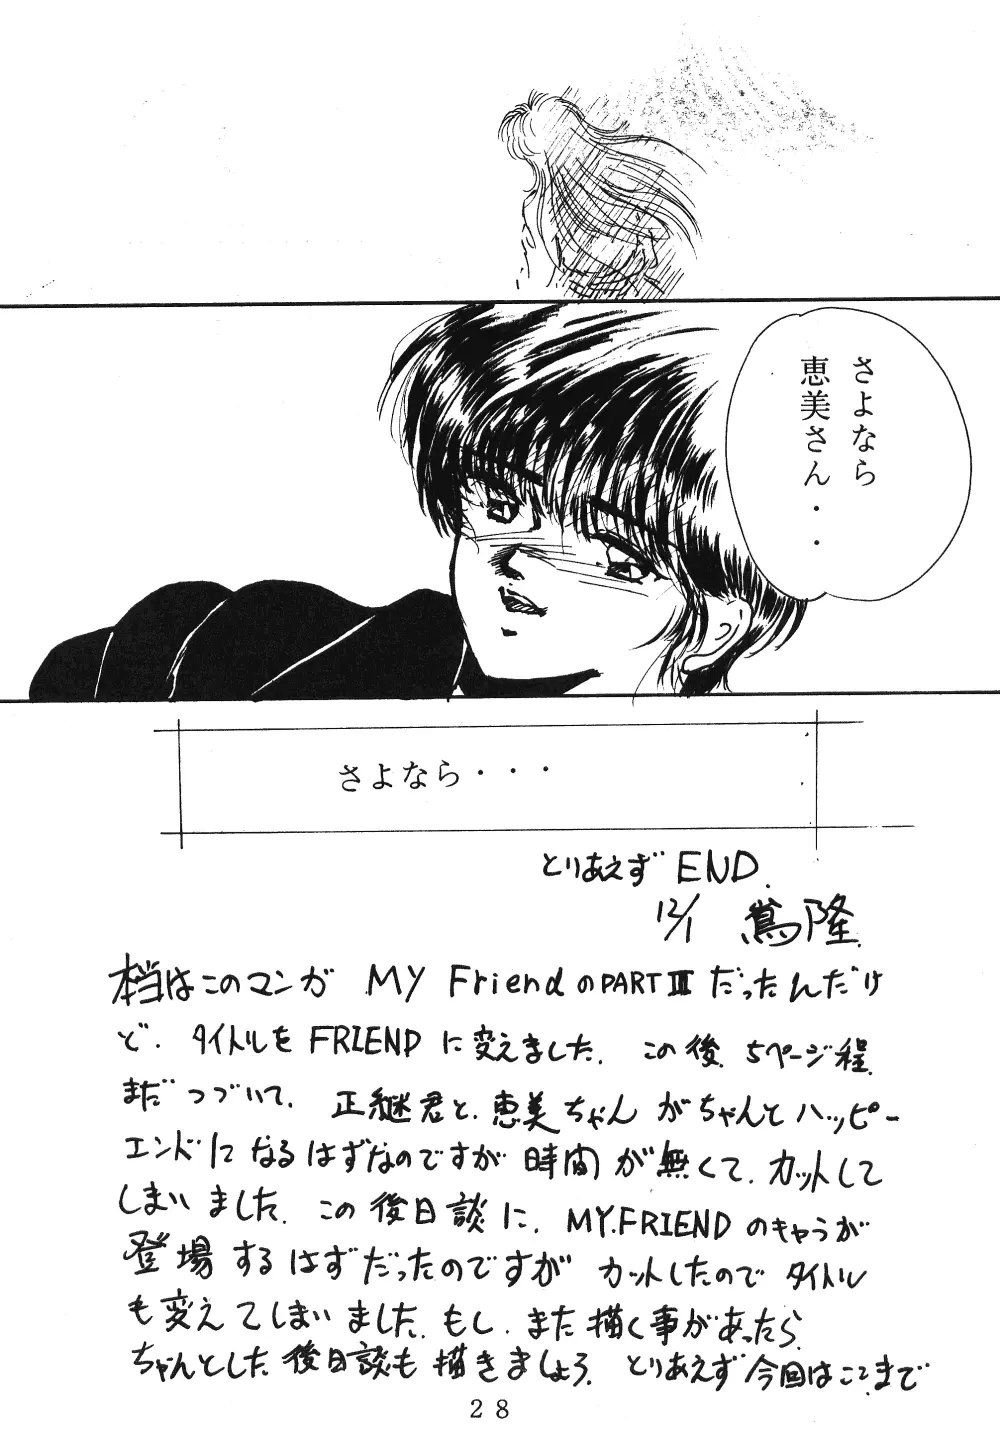 さよなら
恵美さん・・
さよなら・・・
とりあえず END.
12/1 蔦隆
本当はこのマンガ MY FriendのPARTⅢだったんだけ
ど、タイトルをFRIENDに変えました。この後、5ページ程、
まだつづいて、正継君と、恵美ちゃんがちゃんとハッピー
エンドになるはずなのですが時間が無くて、カットして
しまいました。この後日談に、MY.FRIENDのキャラが
登場するはずだったのですがカットしたのでタイトル
も変えてしまいました。もし、また描く事があったら、
ちゃんとした後日談も描きましょう。とりあえず今回はここまで
28